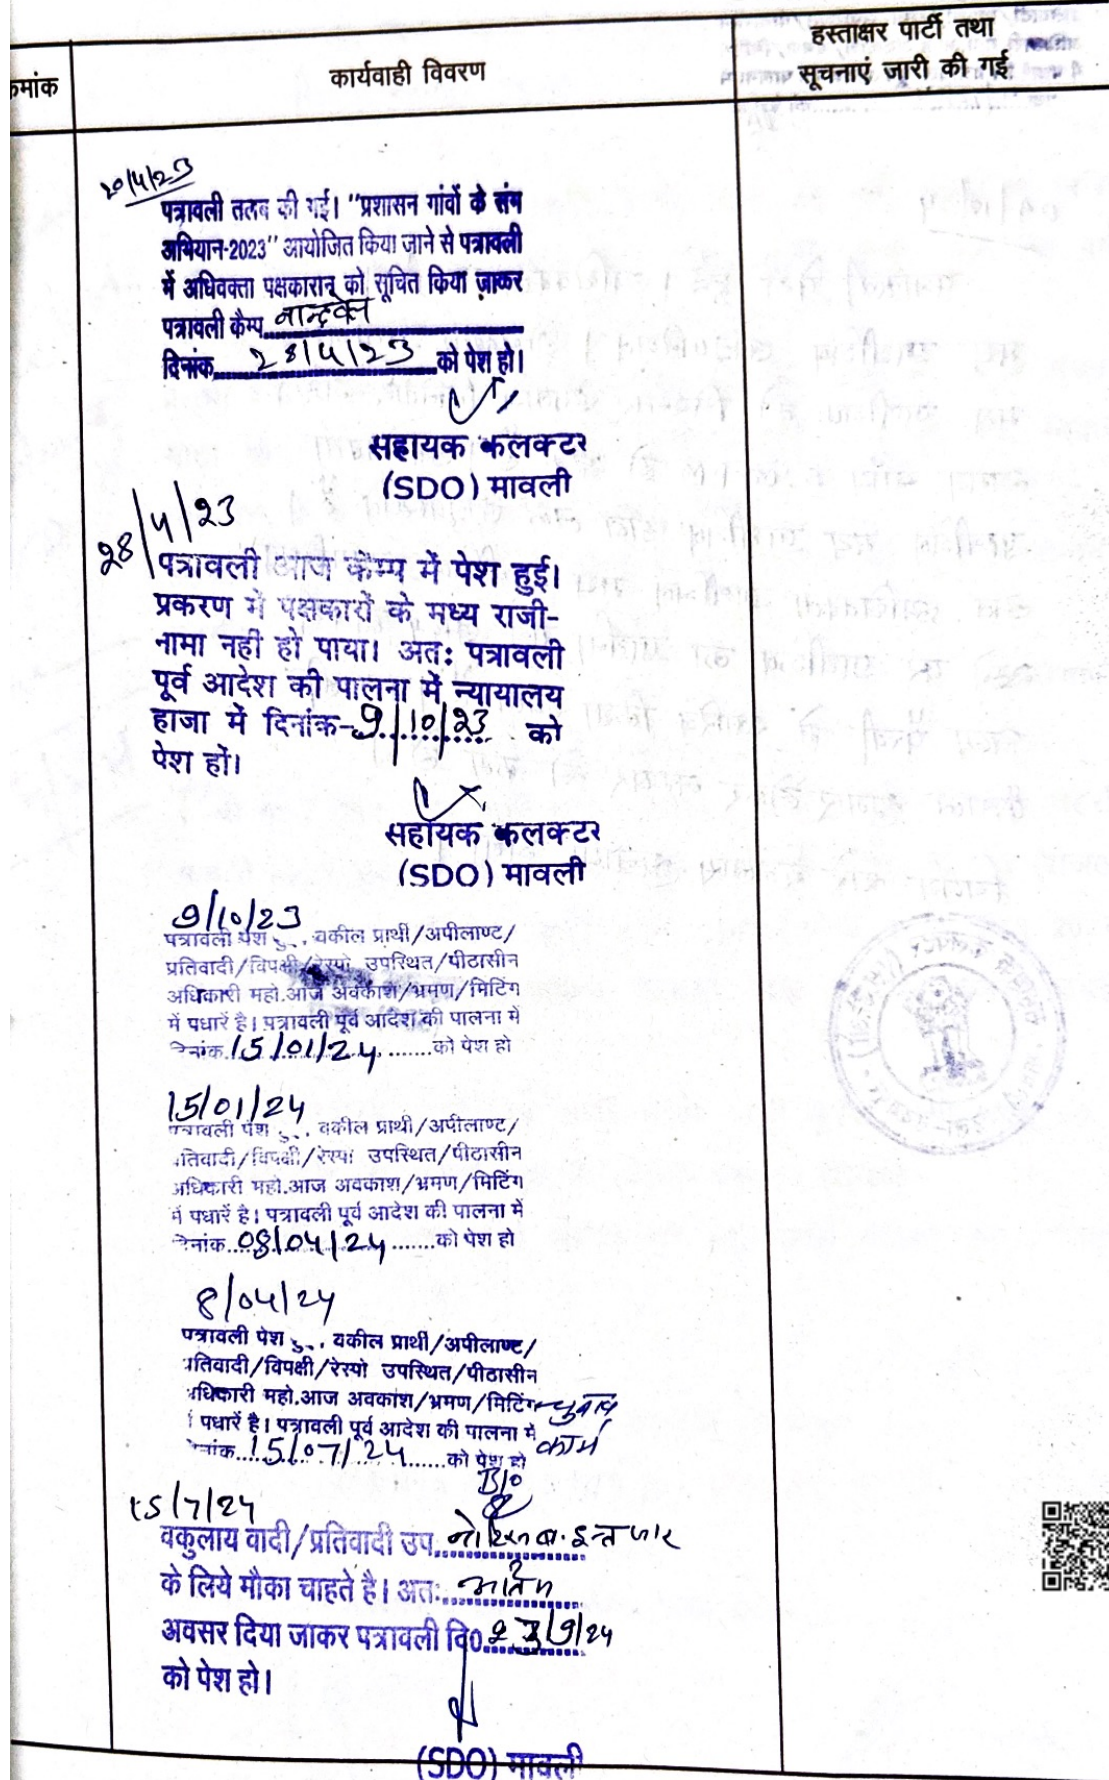 क्रमांक
कार्यवाही विवरण
हस्ताक्षर पार्टी तथा
सूचनाएं जारी की गई
20/4/23
पत्रावली तलब की गई। "प्रशासन गांवों के संग
अभियान-2023" आयोजित किया जाने से पत्रावली
में अधिवक्ता पक्षकारान् को सूचित किया जाकर
पत्रावली कैम्प
दिनांक 28/4/23 को पेश हो।
सहायक कलक्टर
(SDO) मावली
28/4/23
पत्रावली आज कैम्प में पेश हुई।
प्रकरण में पक्षकारों के मध्य राजी-
नामा नही हो पाया। अतः पत्रावली
पूर्व आदेश की पालना में न्यायालय
हाजा में दिनांक-9/10/23 को
पेश हों।
सहायक कलक्टर
(SDO) मावली
9/10/23
पत्रावली पेश वकील प्रार्थी/अपीलाण्ट/
प्रतिवादी/विपक्षी/रेस्पो उपस्थित/पीठासीन
अधिकारी महो.आज अवकाश/भ्रमण/मिटिंग
में पधारें है। पत्रावली पूर्व आदेश की पालना में
दिनांक 15/01/24 को पेश हो
15/01/24
पत्रावली पेश वकील प्रार्थी/अपीलाण्ट/
प्रतिवादी/विपक्षी/रेस्पो उपस्थित/पीठासीन
अधिकारी महो.आज अवकाश/भ्रमण/मिटिंग
में पधारें है। पत्रावली पूर्व आदेश की पालना में
दिनांक 08/04/24 को पेश हो
8/04/24
पत्रावली पेश वकील प्रार्थी/अपीलाण्ट/
प्रतिवादी/विपक्षी/रेस्पो उपस्थित/पीठासीन
अधिकारी महो.आज अवकाश/भ्रमण/मिटिंग चुनाव
में पधारें है। पत्रावली पूर्व आदेश की पालना में कार्य
दिनांक 15/07/24 को पेश हो
15/7/24
वकुलाय वादी/प्रतिवादी उप.
के लिये मौका चाहते है। अतः
अवसर दिया जाकर पत्रावली दि0 23/9/24
को पेश हो।
(SDO) मावली